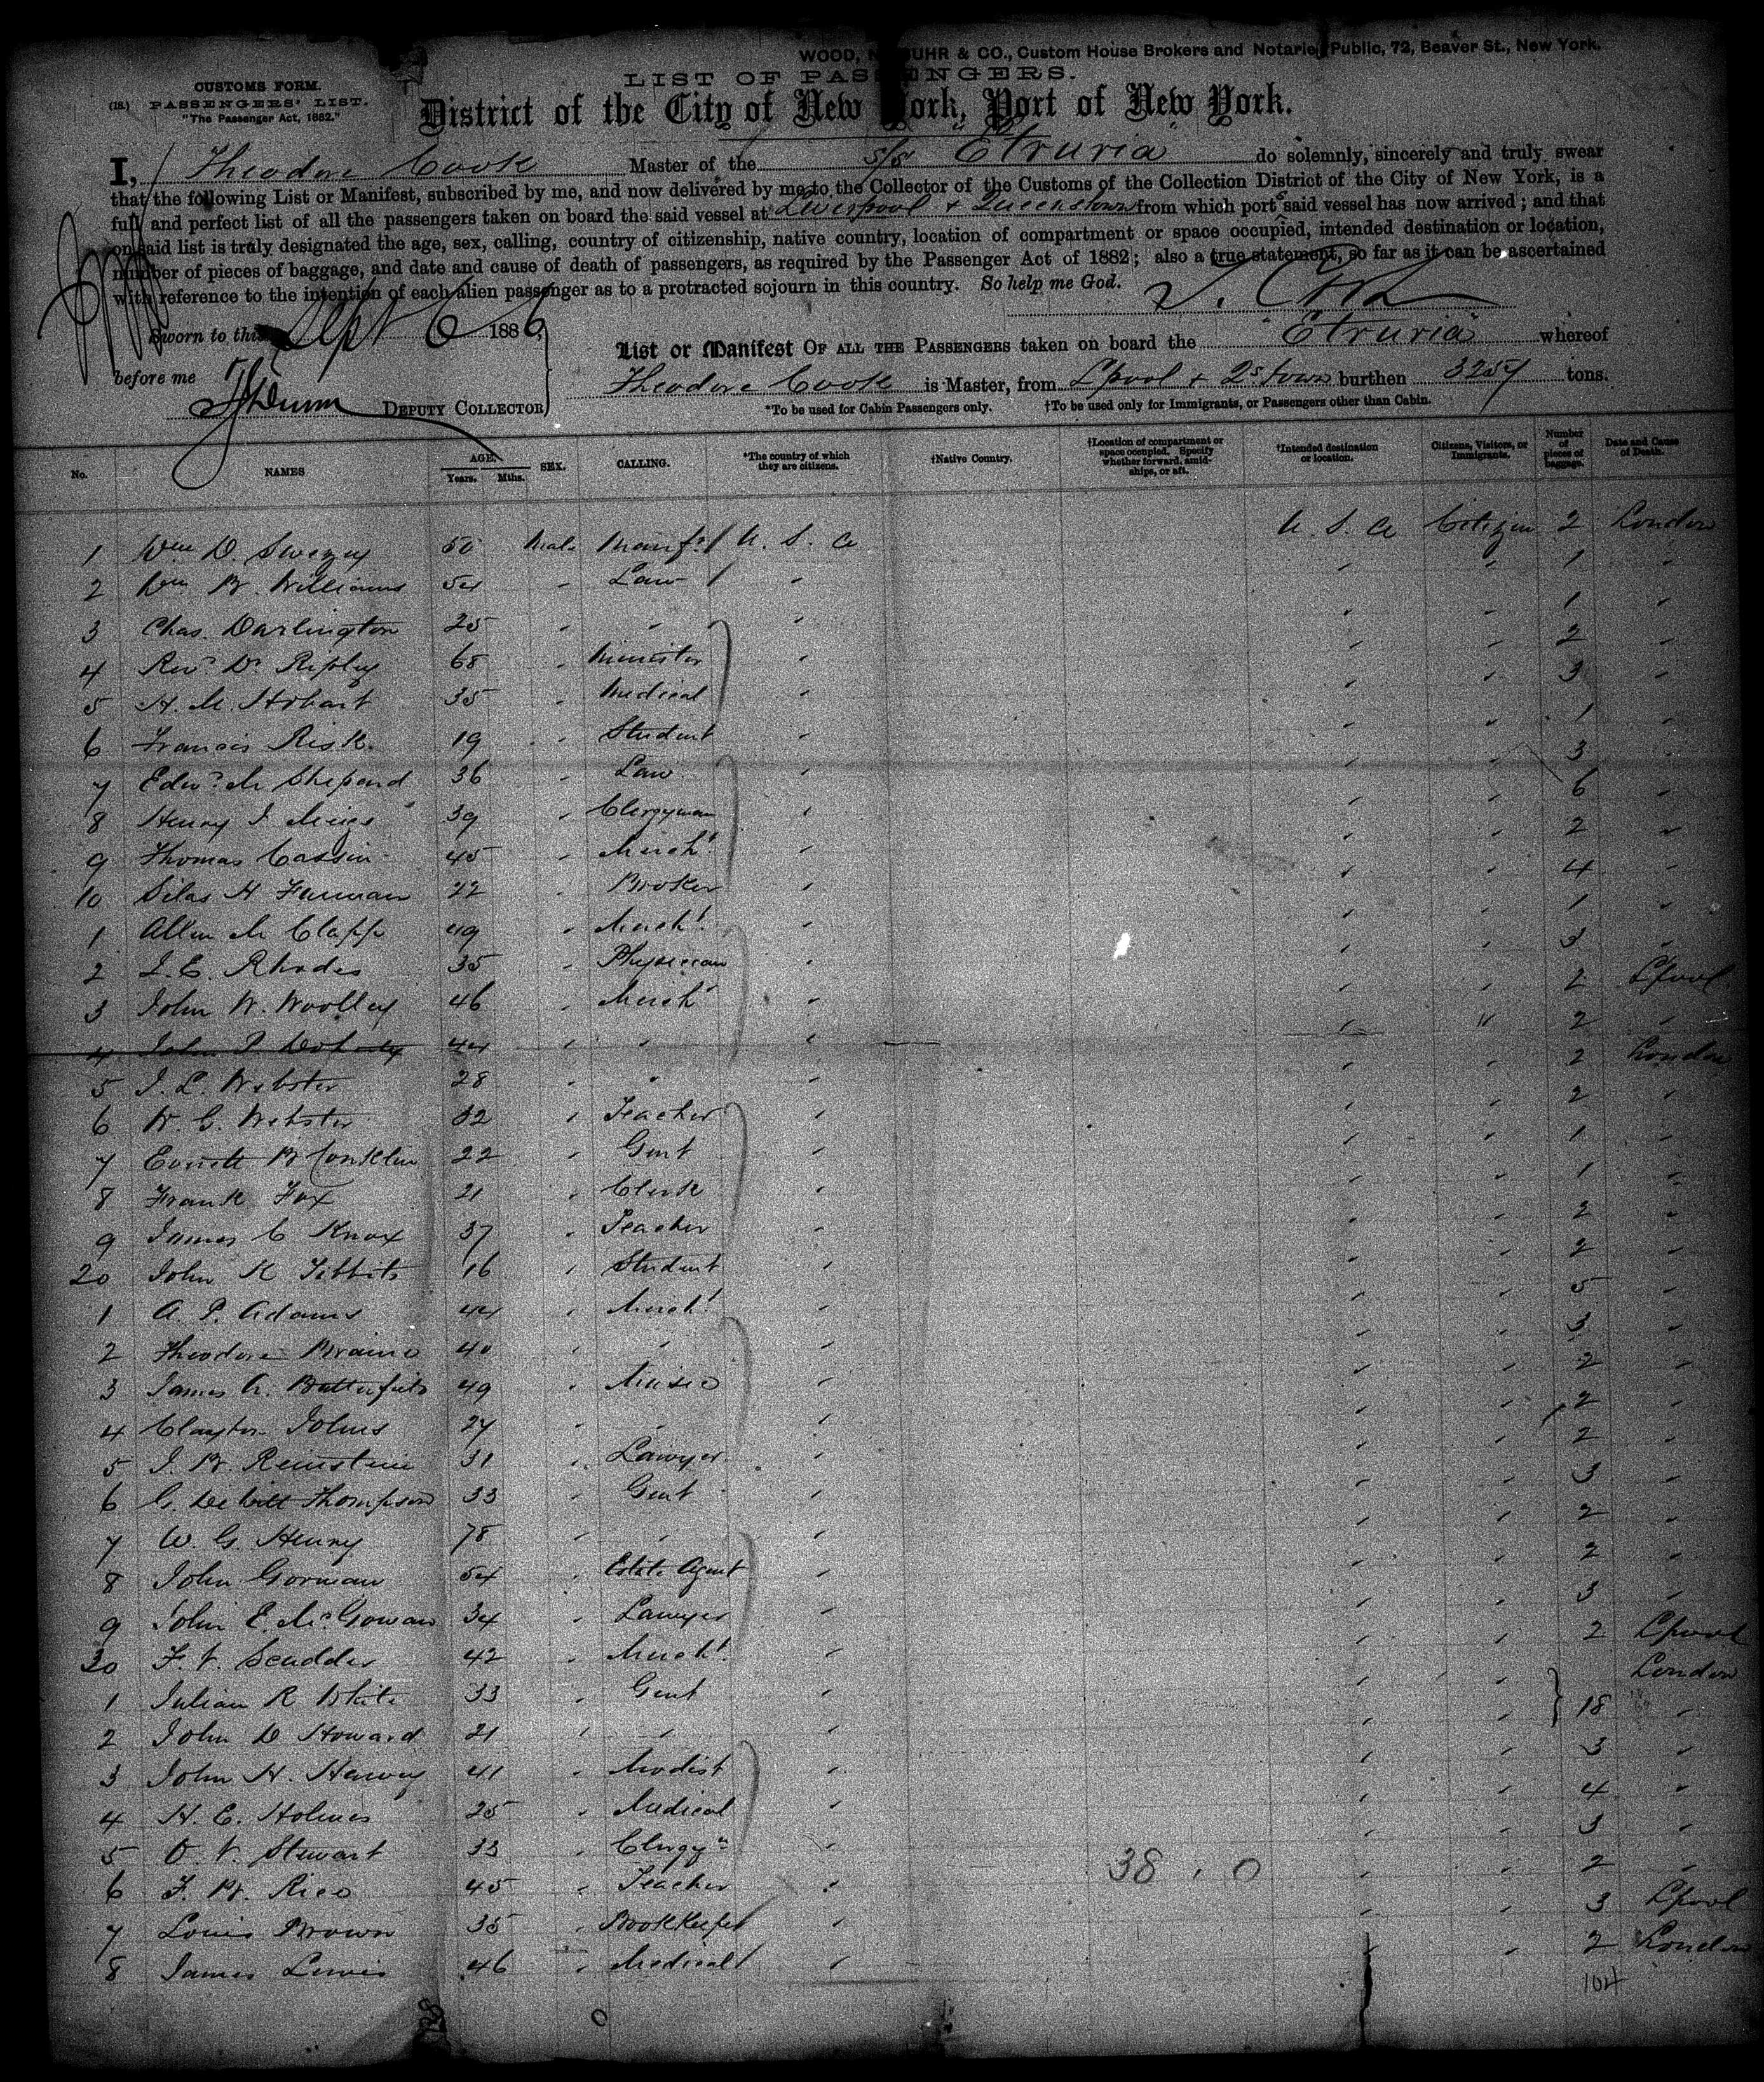 WOOD, N UHR & CO., Custom House Brokers and Notaries Public, 72, Beaver St., New York.
CUSTOMS FORM.
LIST OF PASSENGERS.
(18.) PASSENGERS' LIST.
"The Passenger Act, 1882."
District of the City of New York, Port of New York.
I, Theodore Cook Master of the s/s "Etruria" do solemnly, sincerely and truly swear
that the following List or Manifest, subscribed by me, and now delivered by me to the Collector of the Customs of the Collection District of the City of New York, is a
full and perfect list of all the passengers taken on board the said vessel at Liverpool + Queenstown from which ports said vessel has now arrived; and that
on said list is truly designated the age, sex, calling, country of citizenship, native country, location of compartment or space occupied, intended destination or location,
number of pieces of baggage, and date and cause of death of passengers, as required by the Passenger Act of 1882; also a true statement, so far as it can be ascertained
with reference to the intention of each alien passenger as to a protracted sojourn in this country. So help me God.
T. Cook
Sworn to this Sept 6 1886,
List or Manifest OF ALL THE PASSENGERS taken on board the "Etruria" whereof
before me
Theodore Cook is Master, from Lpool + Qstown burthen 3257 tons.
DEPUTY COLLECTOR
*To be used for Cabin Passengers only. †To be used only for Immigrants, or Passengers other than Cabin.
No. NAMES AGE. Years. Mths. SEX. CALLING. *The country of which they are citizens. †Native Country. †Location of compartment or space occupied. Specify whether forward, amidships, or aft. †Intended destination or location. Citizens, Visitors, or Immigrants. Number of pieces of baggage. Date and Cause of Death.
1 Wm D. Swezey 50 Male Manfr U. S. a U. S. a Citizen 2 London
2 Wm B. Williams 54 " Law " " " 1 "
3 Chas. Darlington 25 " " " " " 1 "
4 Revd Dr Ripley 68 " Minister " " " 2 "
5 H. M. Hobart 35 " Medical " " " 3 "
6 Francis Risk 19 " Student " " " 1 "
7 Edwd M Shepard 36 " Law " " " 3 "
8 Henry I 39 " Clergyman " " " 6 "
9 Thomas Cassin 45 " Mercht " " " 2 "
10 Silas H Furman 22 " Broker " " " 4 "
1 Allen M Clapp 49 " Mercht " " " 1 "
2 I. E. Rhodes 35 " Physician " " " 3 "
3 John W. Woolley 46 " Mercht " " " 2 Lpool
4 John P Doherty 44 " " " " " 2 "
5 J. L. Webster 28 " " " " " 2 London
6 W. G. Webster 32 " Teacher " " " 2 "
7 Everett B Conklin 22 " Gent " " " 1 "
8 Frank Fox 21 " Clerk " " " 1 "
9 James C Knox 37 " Teacher " " " 2 "
20 John K Tibbits 16 " Student " " " 2 "
1 A. P. Adams 44 " Mercht " " " 5 "
2 Theodore 40 " " " " " 3 "
3 James A. Butterfield 49 " Music " " " 2 "
4 Clayton Johns 27 " " " " " 2 "
5 J. B. Reinstein 31 " Lawyer " " " 2 "
6 G. De Witt Thompson 33 " Gent " " " 3 "
7 W. G. Henry 78 " " " " " 2 "
8 John Gorman 54 " Estate Agent " " " 2 "
9 John E. McGowan 34 " Lawyer " " " 3 "
30 F. V. Scudder 42 " Mercht " " " 2 Lpool
1 Julian R White 33 " Gent " " " London
2 John D Howard 21 " " " " " 18 "
3 John H. Harvey 41 " Modist " " " 3 "
4 H. C. Holmes 25 " Medical " " " 4 "
5 D. V. Stewart 33 " Clergyn " " " 3 "
6 F. B. Rice 45 " Teacher " 38 . 0 " " 2 "
7 Louis Brown 35 " Bookkeeper " " " 3 Lpool
8 James Lewis 46 " Medical " " " 2 London
104